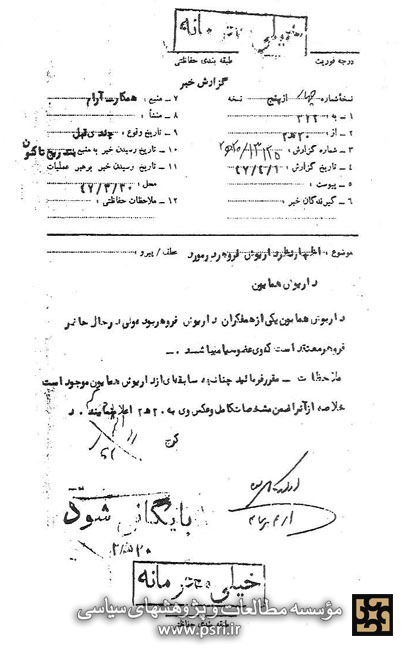 خیلی محرمانه
درجه فوریت
طبقه بندی حفاظتی
گزارش خبر
نسخه شماره چهار از پنج نسخه
۱ - به ۳۲۲
۲ - از ۲۰ ه ۲
۳ - شماره گزارش
۴ - تاریخ گزارش
۵ - پیوست
۶ - گیرندگان خبر
۷ - منبع همکار آرام
۸ - منشأ
۹ - تاریخ وقوع چندی قبل
۱۰ - تاریخ رسیدن خبر به منبع بتدریج تاکنون
۱۱ - تاریخ رسیدن خبر برهبر عملیات
محل ۴۷/۳/۳۰
۱۲ - ملاحظات حفاظتی
موضوع اظهارنظر داریوش فروهر در مورد
داریوش همایون
عطف / پیرو
داریوش همایون یکی از همفکران داریوش فروهر بود ولی در حال حاضر
فروهر معتقد است که وی عضو سیا میباشد . -
ملاحظات - مقرر فرمائید چنانچه سابقه‌ای از داریوش همایون موجود است
خلاصه از آنرا ضمن مشخصات کامل و عکس وی به ۲۰ ه ۲ اعلام نمایند .
بایگانی شود
خیلی محرمانه
طبقه بندی حفاظتی
مؤسسه مطالعات و پژوهشهای سیاسی
www.psri.ir